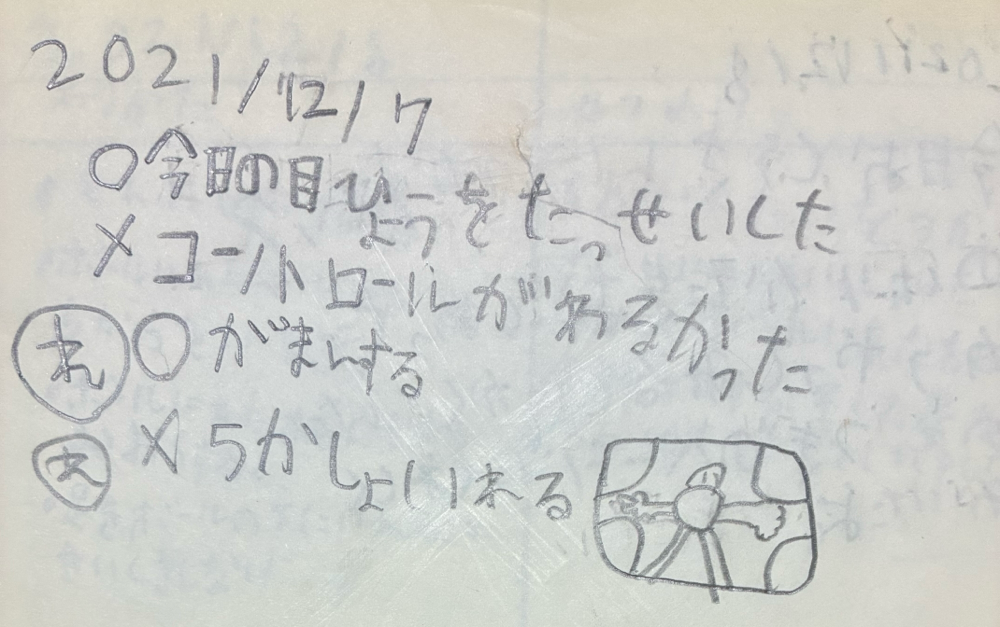 2021/12/7
○今日の目ひょうをたっせいした
×コントロールがわるかった
れ ○がまんする
×5かしょいれる